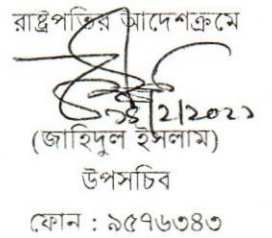 রাষ্ট্রপতির আদেশক্রমে
/2/2021
(জাহিদুল ইসলাম)
উপসচিব
ফোন : ৯৫৭৬৩৪৩